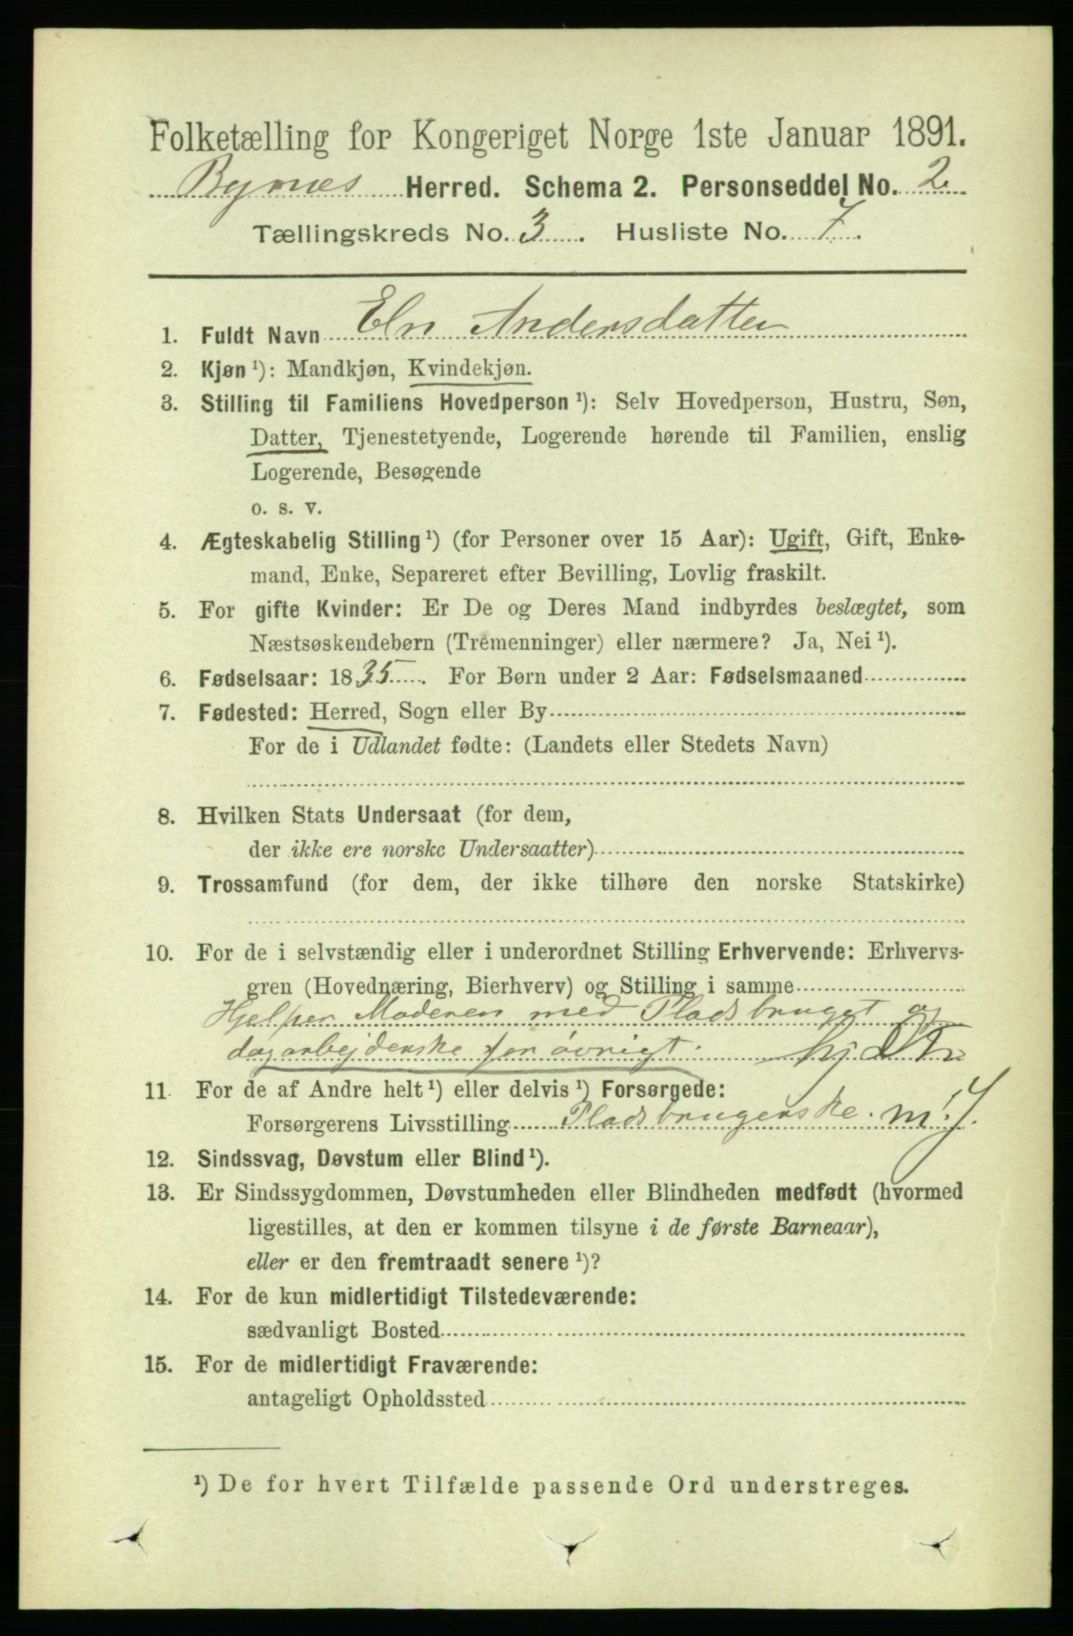 Folketælling for Kongeriget Norge 1ste Januar 1891.
Bynæs Herred. Schema 2. Personseddel No. 2.
Tællingskreds No. 3. Husliste No. 7.
1. Fuldt Navn Eln Andersdatter
2. Kjøn ¹): Mandkjøn, Kvindekjøn.
3. Stilling til Familiens Hovedperson ¹): Selv Hovedperson, Hustru, Søn,
Datter, Tjenestetyende, Logerende hørende til Familien, enslig
Logerende, Besøgende
o. s. v.
4. Ægteskabelig Stilling ¹) (for Personer over 15 Aar): Ugift, Gift, Enke-
mand, Enke, Separeret efter Bevilling, Lovlig fraskilt.
5. For gifte Kvinder: Er De og Deres Mand indbyrdes beslægtet, som
Næstsøskendebørn (Tremenninger) eller nærmere? Ja, Nei ¹).
6. Fødselsaar: 1835. For Børn under 2 Aar: Fødselsmaaned
7. Fødested: Herred, Sogn eller By
For de i Udlandet fødte: (Landets eller Stedets Navn)
8. Hvilken Stats Undersaat (for dem,
der ikke ere norske Undersaatter)
9. Trossamfund (for dem, der ikke tilhøre den norske Statskirke)
10. For de i selvstændig eller i underordnet Stilling Erhvervende: Erhvervs-
gren (Hovednæring, Bierhverv) og Stilling i samme
Hjelper Moderen med Pladsbruget og
dagarbejderske for øvrigt.
11. For de af Andre helt ¹) eller delvis ¹) Forsørgede:
Forsørgerens Livsstilling Pladsbrugerske.
12. Sindssvag, Døvstum eller Blind ¹).
13. Er Sindssygdommen, Døvstumheden eller Blindheden medfødt (hvormed
ligestilles, at den er kommen tilsyne i de første Barneaar),
eller er den fremtraadt senere ¹)?
14. For de kun midlertidigt Tilstedeværende:
sædvanligt Bosted
15. For de midlertidigt Fraværende:
antageligt Opholdssted
¹) De for hvert Tilfælde passende Ord understreges.